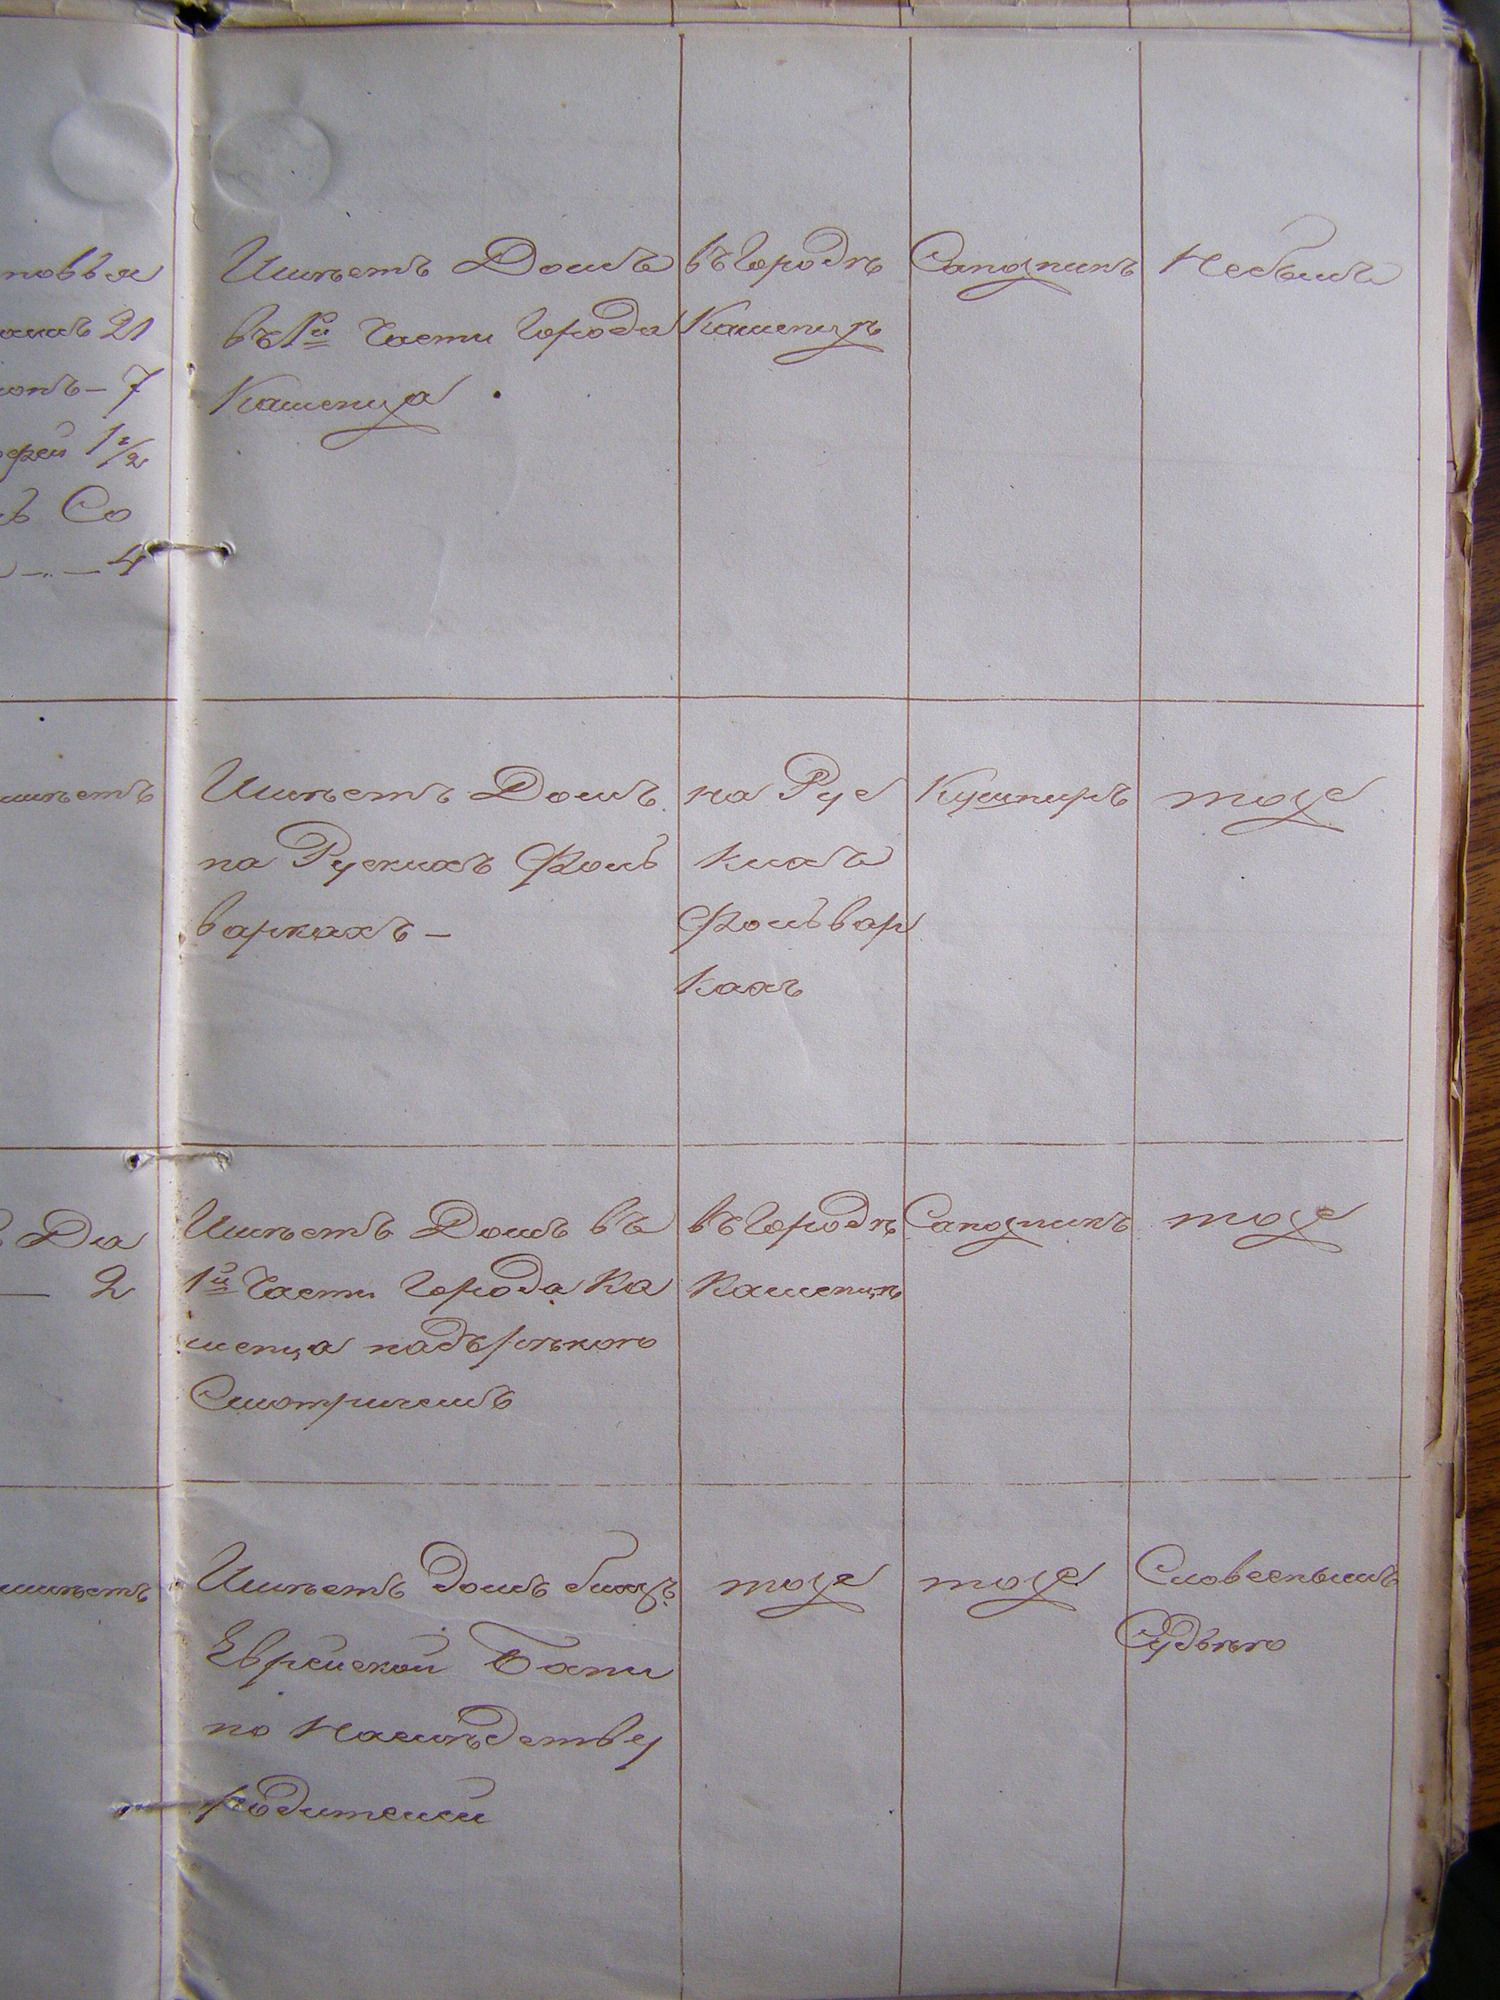 новья
21
7
1 1/2
Со
4
Имѣетъ Домъ
въ 1й Части Города
Каменца
въ Городѣ
Каменцѣ
Сапожникъ
Небылъ
имѣетъ
Имѣетъ Домъ
на Рускихъ Фоль
варкахъ —
на Рус
кихъ
Фольвар
кахъ
Кушниръ
тоже
Два
2
Имѣетъ Домъ въ
1й Части Города Ка
менца надъ рѣкою
Смотричемъ
въ Городѣ
Каменцѣ
Сапожникъ
тоже
имѣетъ
Имѣетъ домъ близъ
Еврейской Бани
по Наслѣдству
родителей
тоже
тоже
Словеснымъ
Судьею